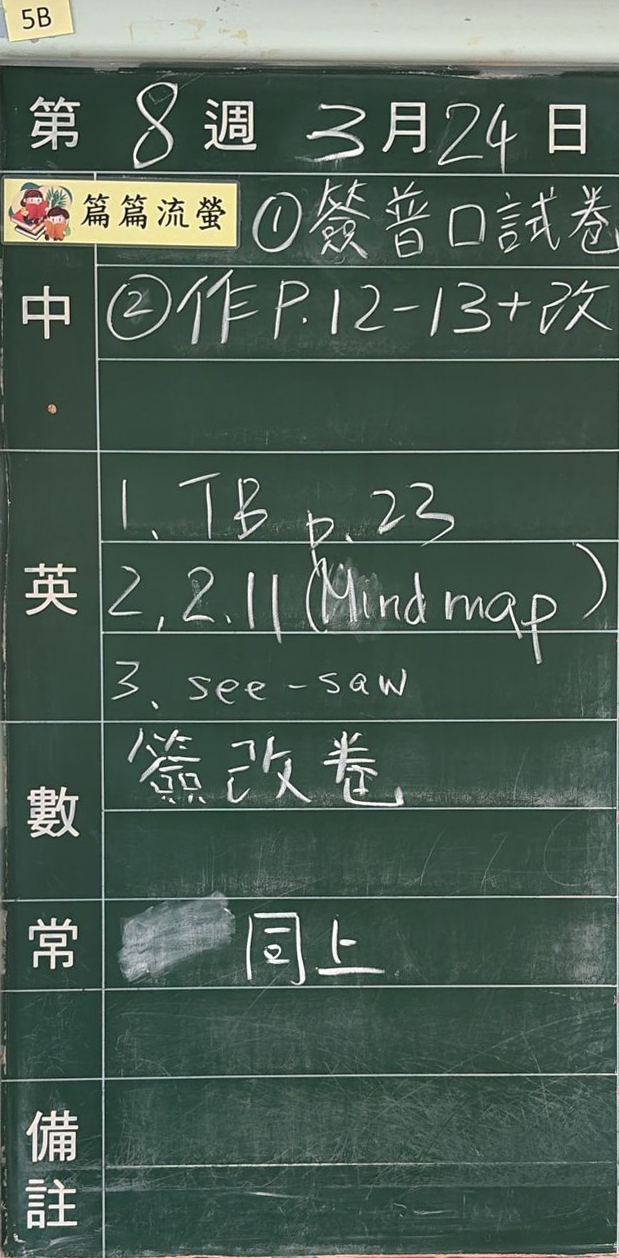 5B
第 8 週 3 月 24 日
篇篇流螢 ①簽普口試卷
中 ②作 P.12-13+改
英 1. TB p.23
2. 2.11 (Mind map)
3. see-saw
數 簽改卷
常 同上
備註